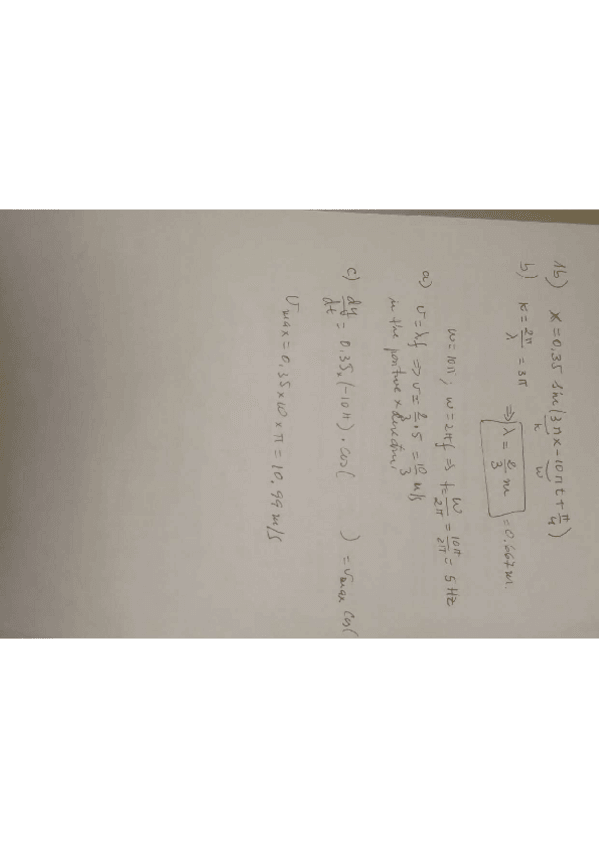 1b) x = 0.35 sin(3πx - 10πt + π/4)
k w
b) k = 2π/λ = 3π ⇒ λ = 2/3 m = 0.667 m.
w = 10π ; w = 2πf ⇒ f = w/2π = 10π/2π = 5 Hz
a) v = λf ⇒ v = 2/3 · 5 = 10/3 m/s
in the positive x direction.
c) dy/dt = 0.35 × (-10π) · cos( ) = v max cos(
v max = 0.35 × 10 × π = 10.99 m/s